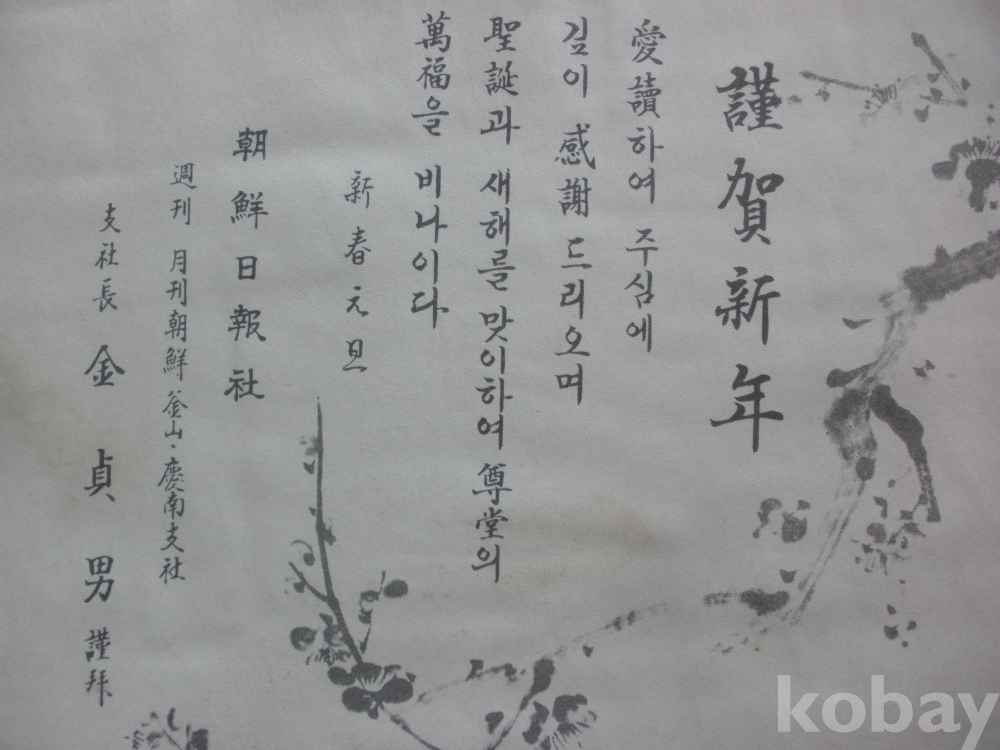 謹賀新年
愛讀하여 주심에
깊이 感謝 드리오며
聖誕과 새해를 맞이하여 尊堂의
萬福을 비나이다
新春元旦
朝鮮日報社
週刊 月刊朝鮮 釜山·慶南支社
支社長 金貞男 謹拜
kobay